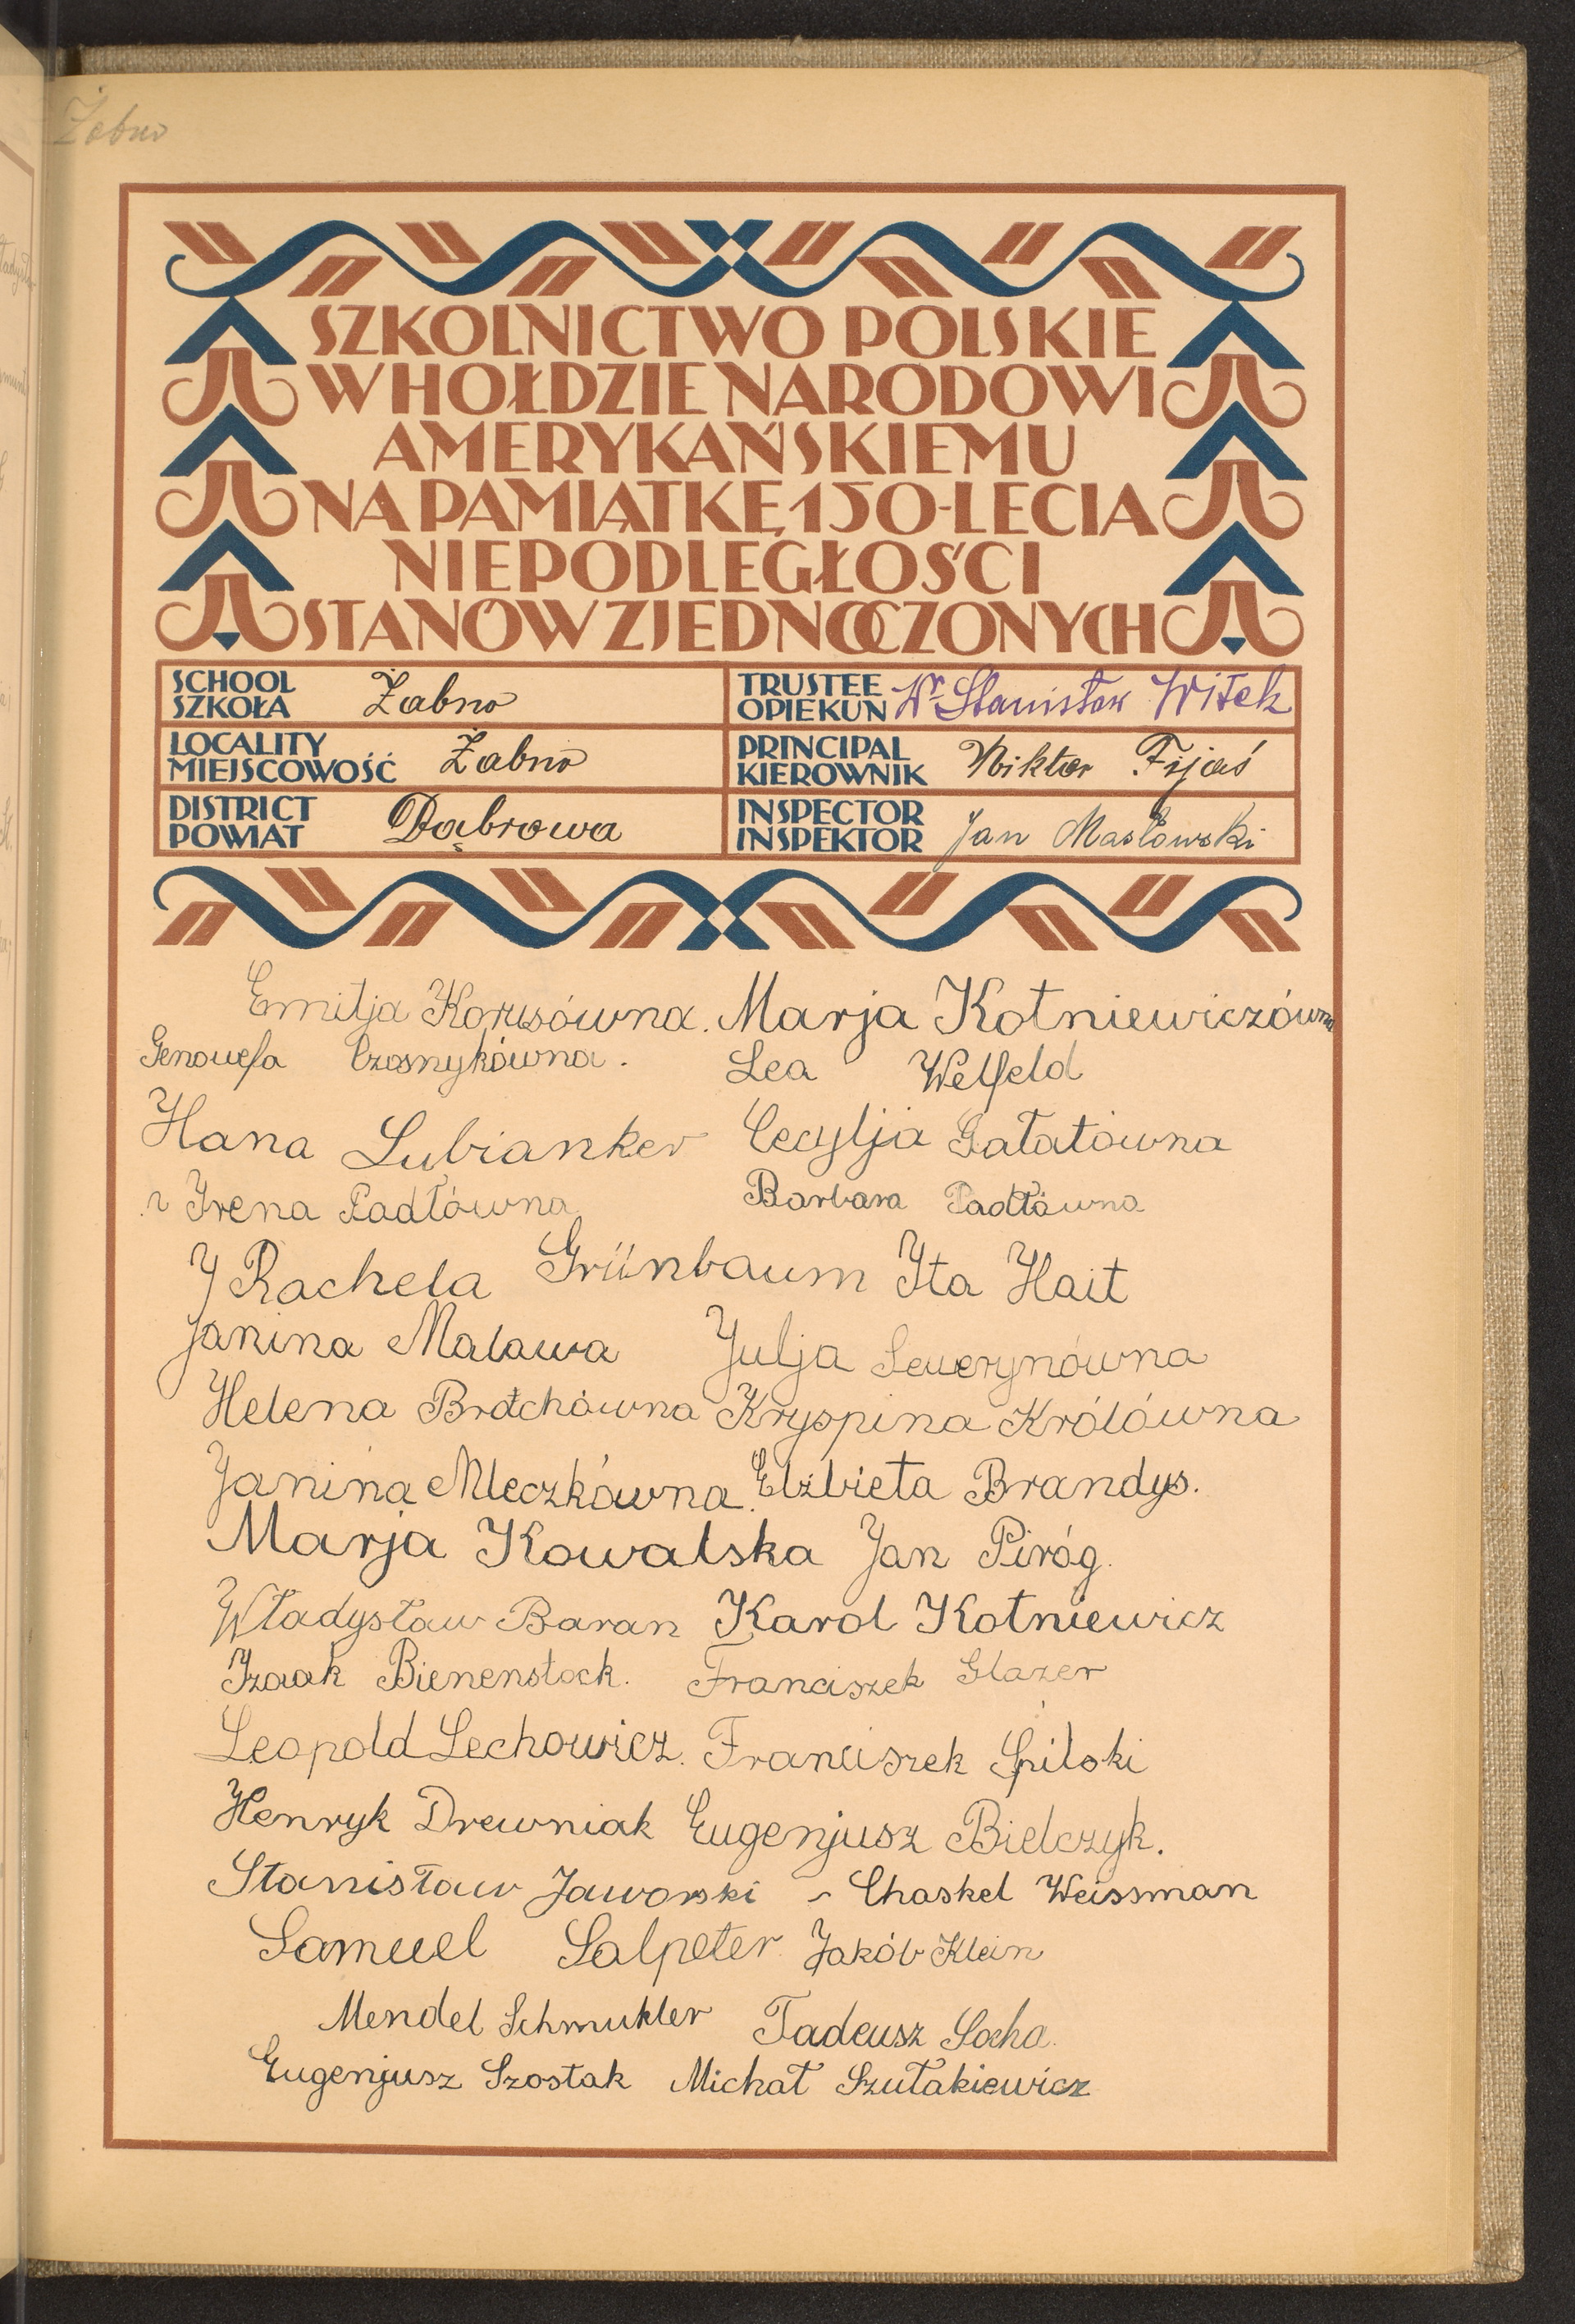 Żabno
SZKOLNICTWO POLSKIE
W HOŁDZIE NARODOWI
AMERYKAŃSKIEMU
NA PAMIĄTKĘ 150-LECIA
NIEPODLEGŁOŚCI
STANÓW ZJEDNOCZONYCH
SCHOOL
SZKOŁA Żabno
TRUSTEE
OPIEKUN Dr Stanisław Witek
LOCALITY
MIEJSCOWOŚĆ Żabno
PRINCIPAL
KIEROWNIK Wiktor Fijaś
DISTRICT
POWIAT Dąbrowa
INSPECTOR
INSPEKTOR Jan Masłowski
Emilja Marja Kotniewiczówna
Genowefa Czosnykówna. Lea Welfeld
Hana Lubianker Cecylja Gałatówna
Irena Padłówna Barbara Padłówna
Rachela Grünbaum Ita Hait
Janina Malawa Julja Sewerynówna
Helena Kryspina Królówna
Janina Mleczkówna. Elżbieta Brandys.
Marja Kowalska Jan Piróg.
Władysław Baran Karol Kotniewicz
Izaak Bienenstock. Franciszek Glazer
Leopold Lechowicz. Franciszek Spilski
Henryk Drewniak Eugenjusz Bielczyk.
Stanisław Jaworski - Chaskel Weissman
Samuel Salpeter Jakób Klein
Mendel Schmukler Tadeusz Socha.
Eugenjusz Szostak Michał Szułakiewicz